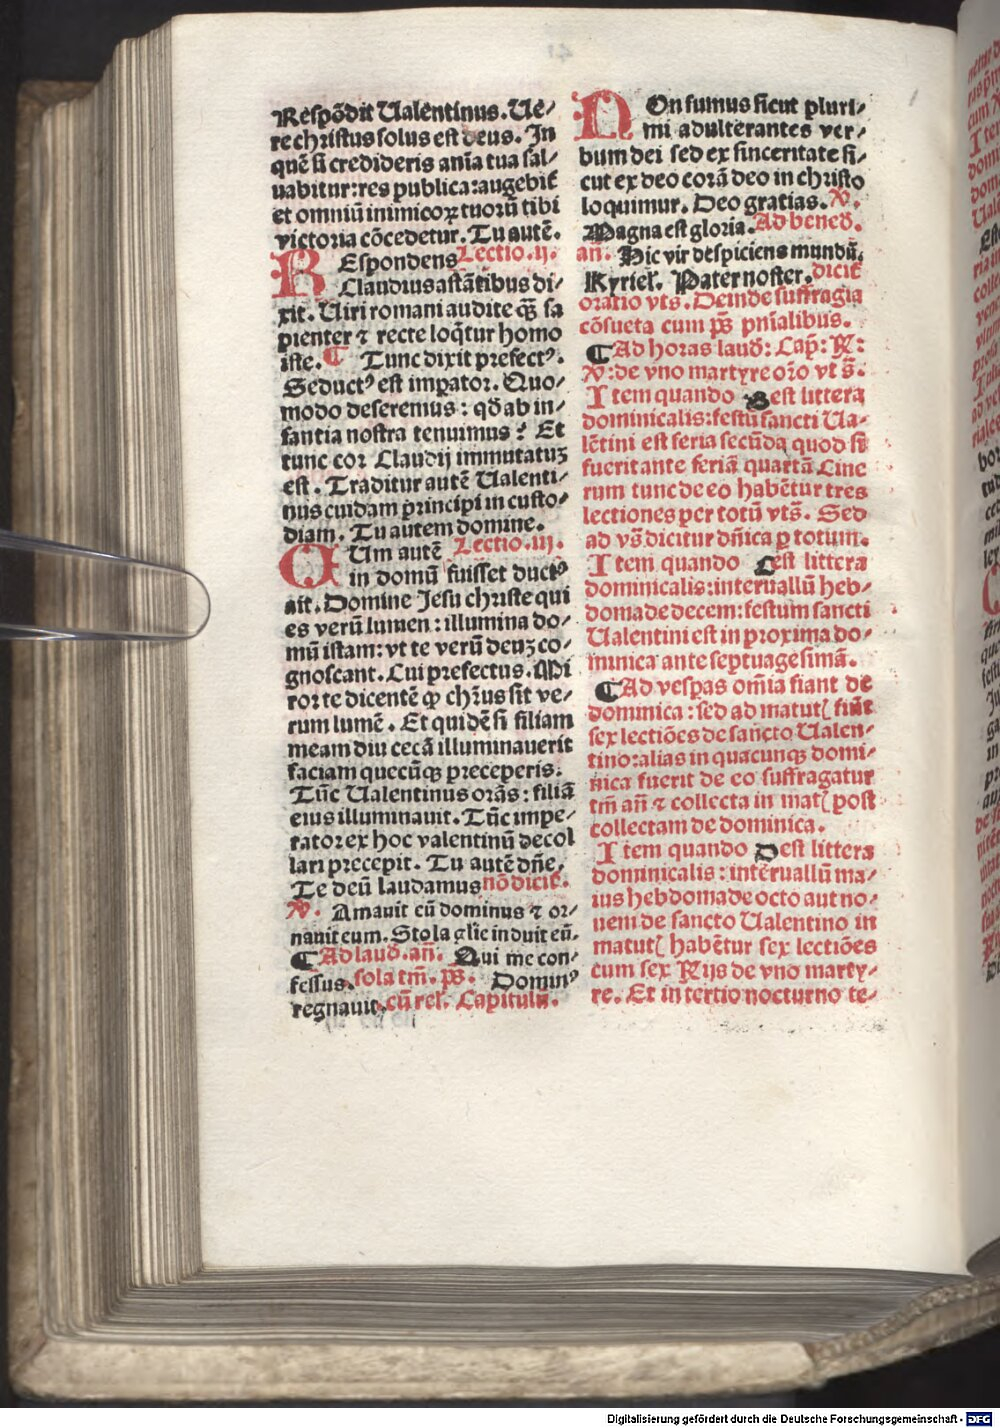 Respōdit Ualentinus. Ue/
re christus solus est deus. In
quē si credideris aīa tua sal/
uabitur: res publica: augebit̄
et omniū inimicoꝝ tuorū tibi
victoria cōcedetur. Tu autē.
REspondens Lectio. ij.
Claudius astātibus di/
xit. Uiri romani audite qꝫ sa
pienter ⁊ recte loq̄tur homo
iste. ¶ Tunc dixit prefectꝰ.
Seductꝰ est imꝑator. Quo/
modo deseremus: qd̄ ab in/
fantia nostra tenuimus? Et
tunc cor Claudij immutatuꝫ
est. Traditur autē Ualenti/
nus cuidam principi in custo/
diam. Tu autem domine.
CUm autē Lectio. iij.
in domū fuisset ductꝰ
ait. Domine Jesu christe qui
es verū lumen: illumina do/
mū istam: vt te verū deuꝫ co/
gnoscant. Cui prefectus. Mi
ror te dicentē ꝙ chr̄us sit ve/
rum lumē. Et quidē si filiam
meam diu cecā illuminauerit
faciam quecūqꝫ preceperis.
Tūc Ualentinus orās: filiā
eius illuminauit. Tūc impe/
rator ex hoc valentinū decol
lari precepit. Tu autē dn̄e.
Te deū laudamus nō dicit̄.
℣. Amauit eū dominus ⁊ or/
nauit eum. Stolā glīe induit eū.
¶ Ad laud̄. añ. Qui me con/
fessus. sola tm̄. pꝰ. Dominꝰ
regnauit. cū rel̄. Capitulū.
NOn sumus sicut pluri/
mi adulterantes ver/
bum dei sed ex sinceritate si/
cut ex deo corā deo in christo
loquimur. Deo gratias. ℣.
Magna est gloria. Ad bened̄.
añ. Hic vir despiciens mundū.
Kyriel̄. Pater noster. dicit̄
oratio vts̄. Deinde suffragia
cōsueta cum ps̄ pn̄ialibus.
¶ Ad horas laud̄: Cap̄: ℟:
℣: de vno martyre or̄o vt s̄.
Item quando B est littera
dominicalis: festū sancti Ua/
lētini est feria secūda quod si
fuerit ante feriā quartā Cine
rum tunc de eo habētur tres
lectiones per totū vts̄. Sed
ad vs̄ dicitur dn̄ica ꝑ totum.
Item quando C est littera
dominicalis: interuallū heb/
domade decem: festum sancti
Ualentini est in proxima do/
minica ante septuagesimā.
¶ Ad vesꝑas om̄ia fiant de
dominica: sed ad matut̄ fiūt
sex lectiōes de sancto Ualen/
tino: alias in quacunqꝫ domi/
nica fuerit de eo suffragatur
tm̄ añ ⁊ collecta in mat̄ post
collectam de dominica.
Item quando D est littera
dominicalis: interuallū ma/
ius hebdomade octo aut no/
uem de sancto Ualentino in
matut̄ habētur sex lectiōes
cum sex ℟ijs de vno marty/
re. Et in tertio nocturno te/
Digitalisierung gefördert durch die Deutsche Forschungsgemeinschaft - DFG